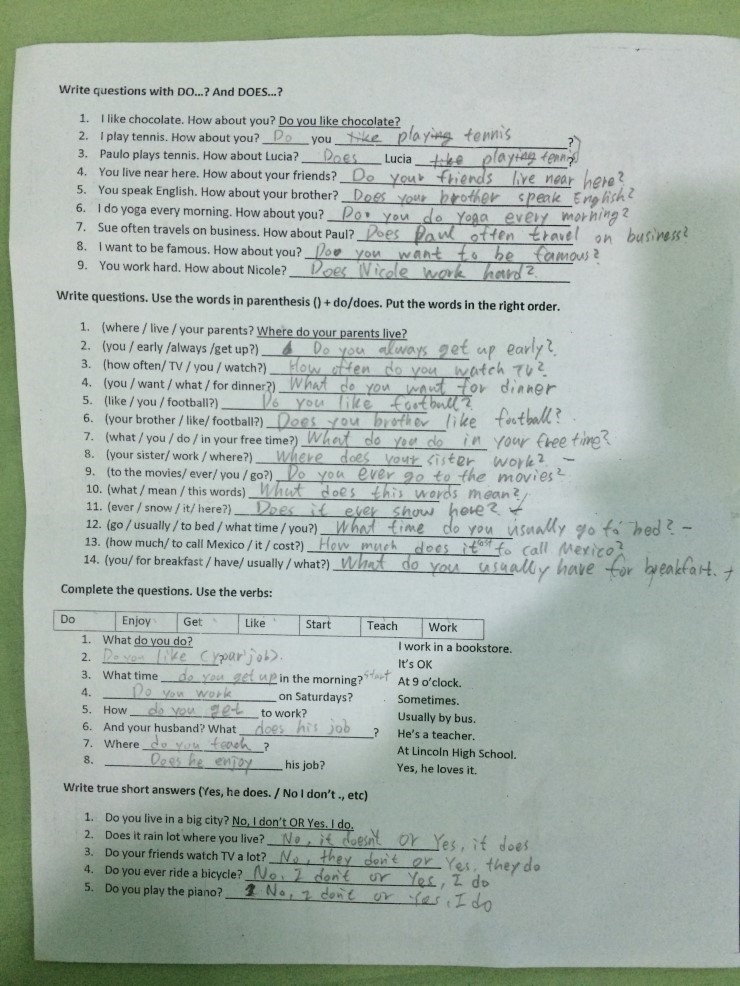 Write questions with DO...? And DOES...?
1. I like chocolate. How about you? Do you like chocolate?
2. I play tennis. How about you? Do you like playing tennis ?
3. Paulo plays tennis. How about Lucia? Does Lucia like playing tennis ?
4. You live near here. How about your friends? Do your friends live near here?
5. You speak English. How about your brother? Does your brother speak English?
6. I do yoga every morning. How about you? Do you do Yoga every morning?
7. Sue often travels on business. How about Paul? Does Paul often travel on business?
8. I want to be famous. How about you? Do you want to be famous?
9. You work hard. How about Nicole? Does Nicole work hard?
Write questions. Use the words in parenthesis () + do/does. Put the words in the right order.
1. (where / live / your parents? Where do your parents live?
2. (you / early /always /get up?) Do you always get up early?
3. (how often/ TV / you / watch?) How often do you watch TV?
4. (you / want / what / for dinner?) What do you want for dinner
5. (like / you / football?) Do you like football?
6. (your brother / like/ football?) Does you brother like football?
7. (what / you / do / in your free time?) What do you do in your free time?
8. (your sister/ work / where?) Where does your sister work? –
9. (to the movies/ ever/ you / go?) Do you ever go to the movies?
10. (what / mean / this words) What does this words mean?
11. (ever / snow / it/ here?) Does it ever snow here? +
12. (go / usually / to bed / what time / you?) What time do you usually go to bed? –
13. (how much/ to call Mexico / it / cost?) How much does it cost to call Mexico?
14. (you/ for breakfast / have/ usually / what?) What do you usually have for breakfast. +
Complete the questions. Use the verbs:
Do Enjoy Get Like Start Teach Work
1. What do you do? I work in a bookstore.
2. Do you like (your job). It's OK
3. What time do you get up in the morning? start At 9 o'clock.
4. Do you work on Saturdays? Sometimes.
5. How do you get to work? Usually by bus.
6. And your husband? What does his job ? He's a teacher.
7. Where do you teach ? At Lincoln High School.
8. Does he enjoy his job? Yes, he loves it.
Write true short answers (Yes, he does. / No I don't ., etc)
1. Do you live in a big city? No, I don't OR Yes. I do.
2. Does it rain lot where you live? No, it doesn't or Yes, it does
3. Do your friends watch TV a lot? No, they don't or Yes, they do
4. Do you ever ride a bicycle? No, I don't or Yes, I do
5. Do you play the piano? No, I don't or Yes, I do